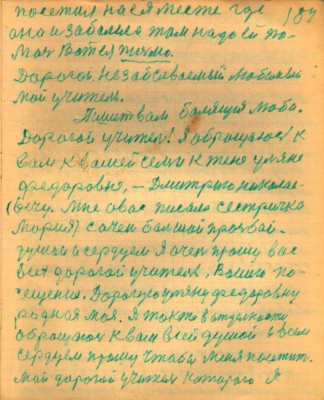 посетил нася месте где 187
она изаболела там надо ей по-
мач Вот ея писмо.
Дорогой. Незабываемый Любимый
мой учитель.
Пишит вам болящия Люба.
Дорогой учител! Я обращаюс к
вам к вашей семи к тене уляне
федоровне, – Дмитрию николае-
(вичу. Мне овас писала сестричка
Мария) с очен болшой прозбай
душой и сердцем Я очен прошу вас
всех дорогой учитель, Вашего по-
сещения. Дорогую уляну федоровну
родная моя. Я тожо вотделности
обращаюс к вам всей душой и всем
сердцем прошу чтобы меня посетит.
Мой дорогой учител которого Я